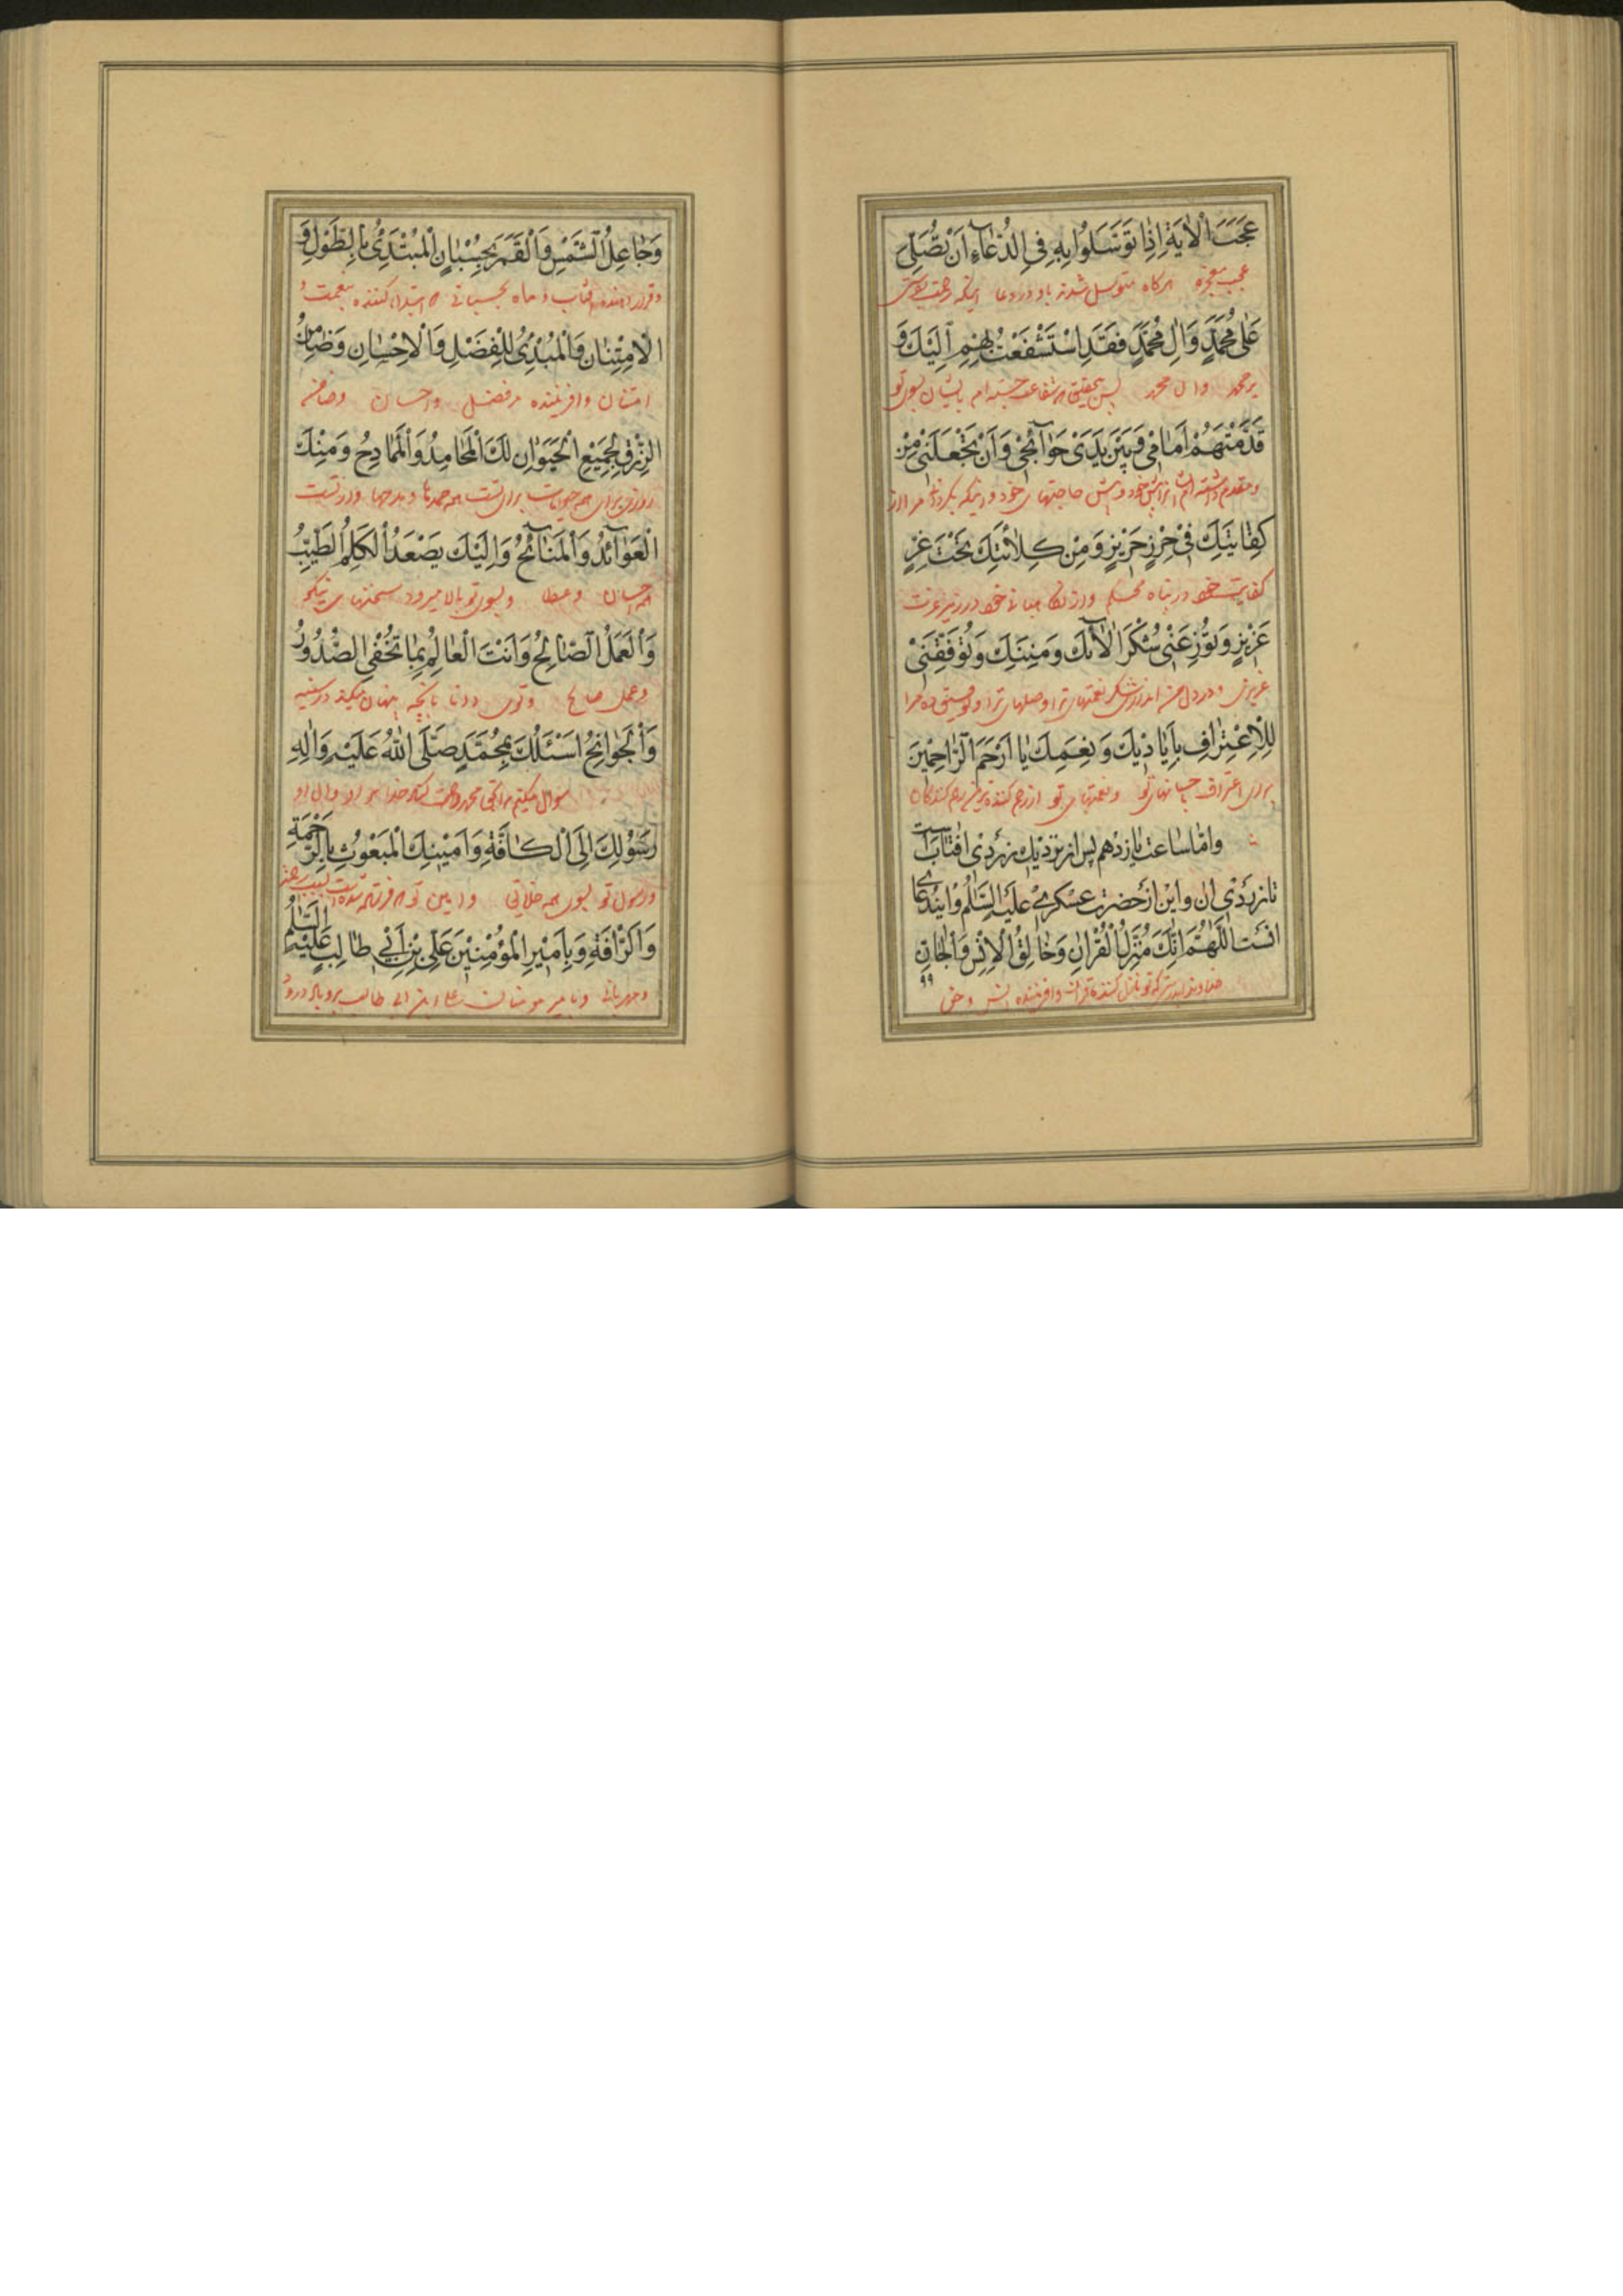 عَجَبَ الْاٰيَةِ اِذٰا تَوَسَّلُوا بِهِ فِى الدُّعٰآءِ اَنْ تُصَلِّىَ
عجب معجزه هرگاه متوسل شدند باو در دعا اینکه رحمت بفرستی
عَلٰى مُحَمَّدٍ وَاٰلِ مُحَمَّدٍ فَقَدِ اسْتَشْفَعْتُ بِهِمْ اِلَيْكَ وَ
بر محمد وال محمد پس بتحقیق که شفاعت جسته ام بایشان بسوی تو
قَدَّمْتُهُمْ اَمٰامِى وَبَيْنَ يَدَىْ حَوٰآئِجِى وَاَنْ تَجْعَلَنِى مِنْ
ومقدم داشته ام ایشانرا پیش خود و پیش حاجتهای خود و اینکه بگردانی مرا از
كِفٰايَتِكَ فِى حِرْزٍ حَرِيزٍ وَمِنْ كِلٰائَتِكَ تَحْتَ عِزٍّ
کفایت خود در پناه محکم واز نگاهبانی خود در زیر عزت
عَزِيزٍ وَتُوزِعَنِى شُكْرَ اٰلٰآئِكَ وَمِنَنِكَ وَتُوَفِّقَنِى
عزیزی و در دل من اندازی شکر نعمتهای ترا و صلهای ترا و توفیق ده مرا
لِلْاِعْتِرٰافِ بِاَيٰادِيكَ وَنِعَمِكَ يٰا اَرْحَمَ الرّٰاحِمِينَ
برای اعتراف باحسانهای تو ونعمتهای تو ای رحم کننده ترین رحم کنندگان
وامّا ساعت یازدهم پس از نزدیك زردی افتاب است
تا زردی ان واین از حضرت عسکری علیه السّلم واین دعای
انست اَللّٰهُمَّ اِنَّكَ مُنْزِلُ الْقُرْاٰنِ وَخٰالِقُ الْاِنْسِ وَالْجٰانِّ
خداوندا بدرستیکه تو نازل کننده قران وافریننده انس و جن
۹۹
وَجٰاعِلُ الشَّمْسِ وَالْقَمَرِ بِحُسْبٰانٍ الْمُبْتَدِئُ بِالطَّوْلِ وَ
وقرار دهنده افتاب و ماه بحسبانی که ابتدا کننده بنعمت و
الْاِمْتِنٰانِ وَالْمُبْدِئُ لِلْفَضْلِ وَالْاِحْسٰانِ وَضٰامِنُ
امتنان وافریننده مر فضل واحسان وضامن
الرِّزْقِ لِجَمِيعِ الْحَيَوٰانِ لَكَ الْمَحٰامِدُ وَالْمَمٰادِحُ وَمِنْكَ
روزی برای همه حیوانات برای تست همه حمدها ومدحها واز تست
الْعَوٰآئِدُ وَالْمَنٰآئِحُ وَاِلَيْكَ يَصْعَدُ الْكَلِمُ الطَّيِّبُ
همه احسان و عطا وبسوی تو بالا میرود سخنهای نیکو
وَالْعَمَلُ الصّٰالِحُ وَاَنْتَ الْعٰالِمُ بِمٰا تُخْفِى الصُّدُورُ
وعمل صالح وتوی دانا بانچه پنهان میکند در سینه
وَالْجَوٰانِحُ اَسْئَلُكَ بِمُحَمَّدٍ صَلَّى اللّٰهُ عَلَيْهِ وَاٰلِهِ
سوال میکنم ترا بحق محمد رحمت کند خدا بر او وال او
رَسُولِكَ اِلَى الْكٰافَّةِ وَاَمِينِكَ الْمَبْعُوثِ بِالرَّحْمَةِ
ورسول تو بسوی همه خلایق وامین تو که فرستاده شده است بسبب رحمت
وَالرَّافَةِ وَبِاَمِيرِ الْمُؤْمِنِينَ عَلِىِّ بْنِ اَبِى طٰالِبٍ عَلَيْهِ السَّلٰمُ
ومهربانی وبامیر مومنان علی ابن ابی طالب بر وباد درود